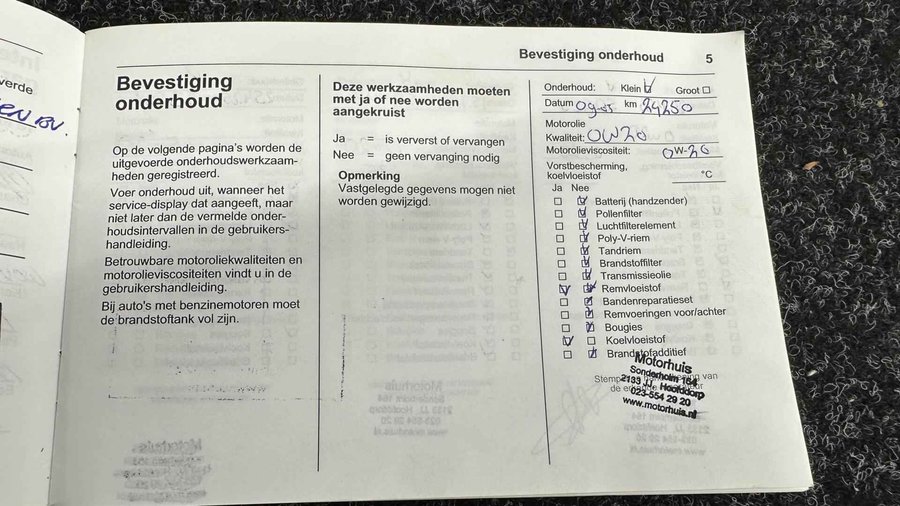 verde
EN BV.
Bevestiging onderhoud 5
Bevestiging
onderhoud
Op de volgende pagina's worden de
uitgevoerde onderhoudswerkzaam-
heden geregistreerd.
Voer onderhoud uit, wanneer het
service-display dat aangeeft, maar
niet later dan de vermelde onder-
houdsintervallen in de gebruikers-
handleiding.
Betrouwbare motoroliekwaliteiten en
motorolieviscositeiten vindt u in de
gebruikershandleiding.
Bij auto's met benzinemotoren moet
de brandstoftank vol zijn.
Deze werkzaamheden moeten
met ja of nee worden
aangekruist
Ja = is ververst of vervangen
Nee = geen vervanging nodig
Opmerking
Vastgelegde gegevens mogen niet
worden gewijzigd.
Onderhoud: Klein Groot
Datum km 24250
Motorolie
Kwaliteit: 0W20
Motorolieviscositeit: 0W-20
Vorstbescherming,
koelvloeistof °C
Ja Nee
Batterij (handzender)
Pollenfilter
Luchtfilterelement
Poly-V-riem
Tandriem
Brandstoffilter
Transmissieolie
Remvloeistof
Bandenreparatieset
Remvoeringen voor/achter
Bougies
Koelvloeistof
Brandstofadditief
Motorhuis
Sonderholm 164
2133 JJ Hoofddorp
023-554 29 20
www.motorhuis.nl